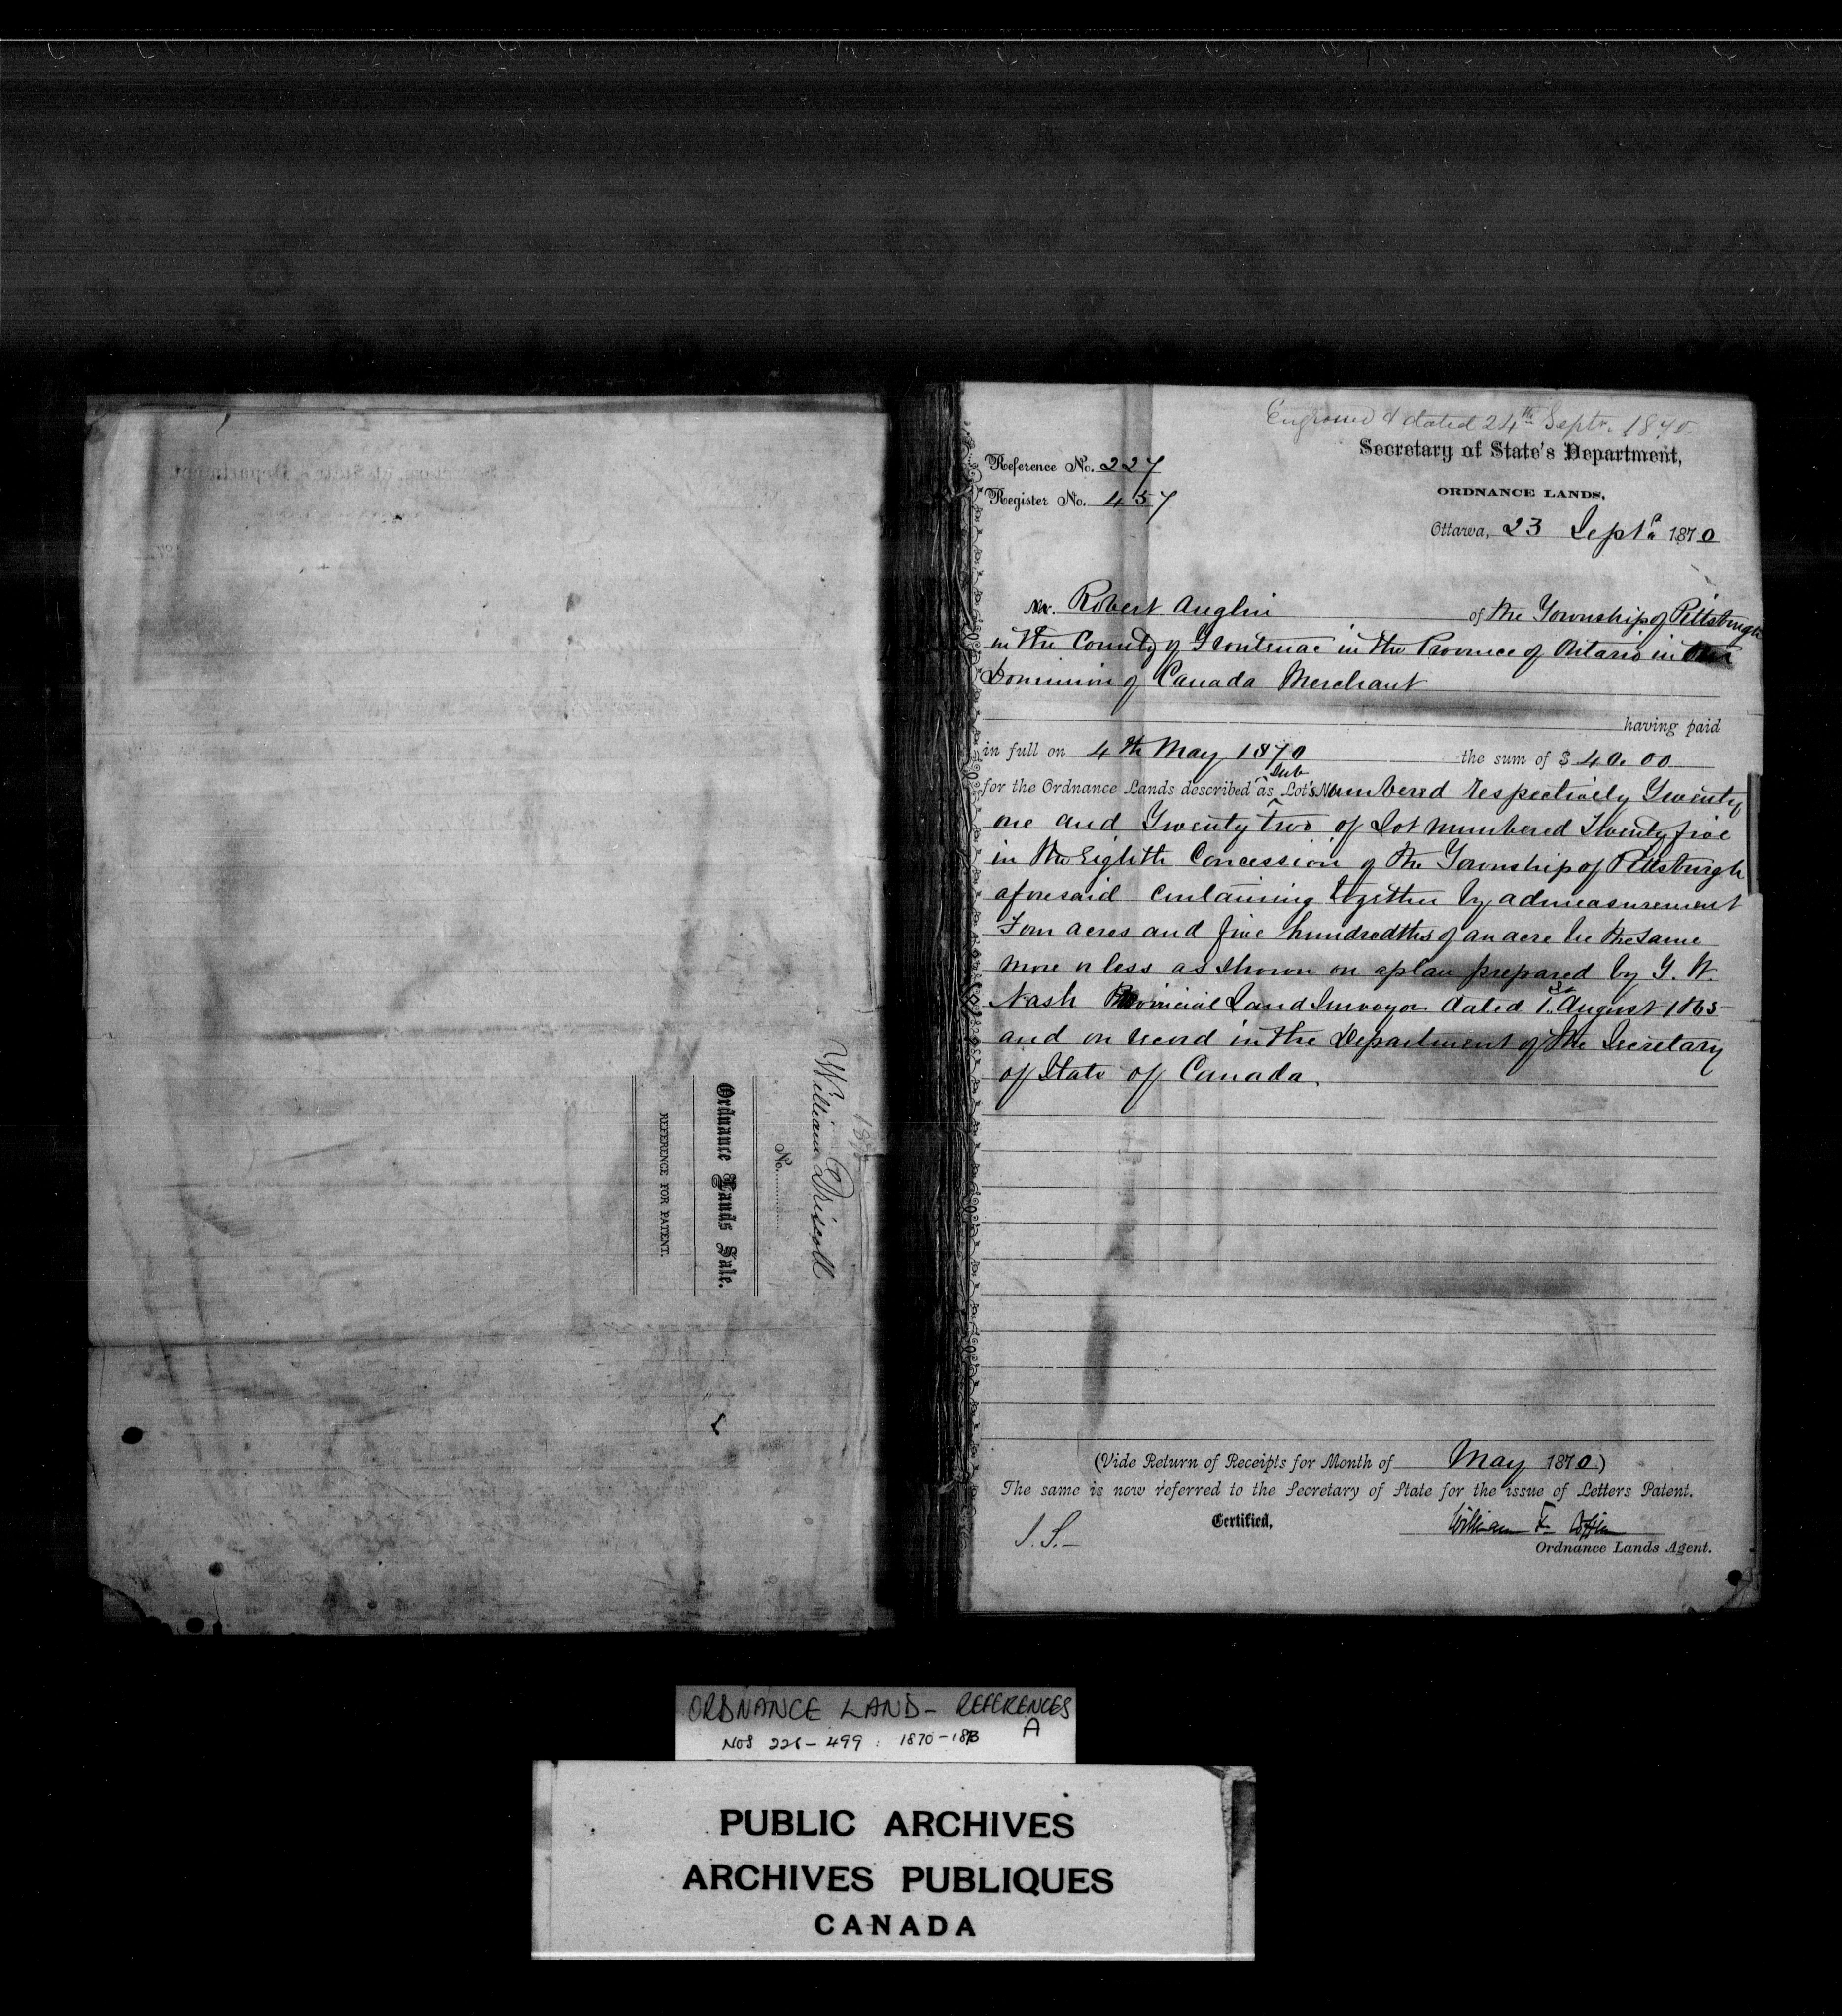 1870
William Driscoll
No.
Ordnance Lands Sale.
REFERENCE FOR PATENT.
Engrossed & dated 24th Septr. 1870.
Secretary of State's Department,
Reference No. 227
ORDNANCE LANDS,
Register No. 457
Ottawa, 23 Septr 1870
Mr. Robert Anglin of the Township of Pittsburgh
in the County of Frontenac in the Province of Ontario in the
Dominion of Canada Merchant
having paid
in full on 4th May 1870 the sum of $ 40.00
for the Ordnance Lands described as Sub Lots Numbered respectively Twenty
one and Twenty two of Lot numbered Twenty five
in the Eighth Concession of the Township of Pittsburgh
aforesaid containing together by admeasurement
Four acres and five hundredths of an acre be the same
more or less as shown on a plan prepared by T. W.
Nash Provincial Land Surveyor dated 1st August 1865
and on record in the Department of the Secretary
of State of Canada.
(Vide Return of Receipts for Month of May 1870)
The same is now referred to the Secretary of State for the issue of Letters Patent.
Certified, William F. Coffin
J. S.
Ordnance Lands Agent.
ORDNANCE LAND - REFERENCES
NOS 226 - 499 : 1870 - 1873 A
PUBLIC ARCHIVES
ARCHIVES PUBLIQUES
CANADA